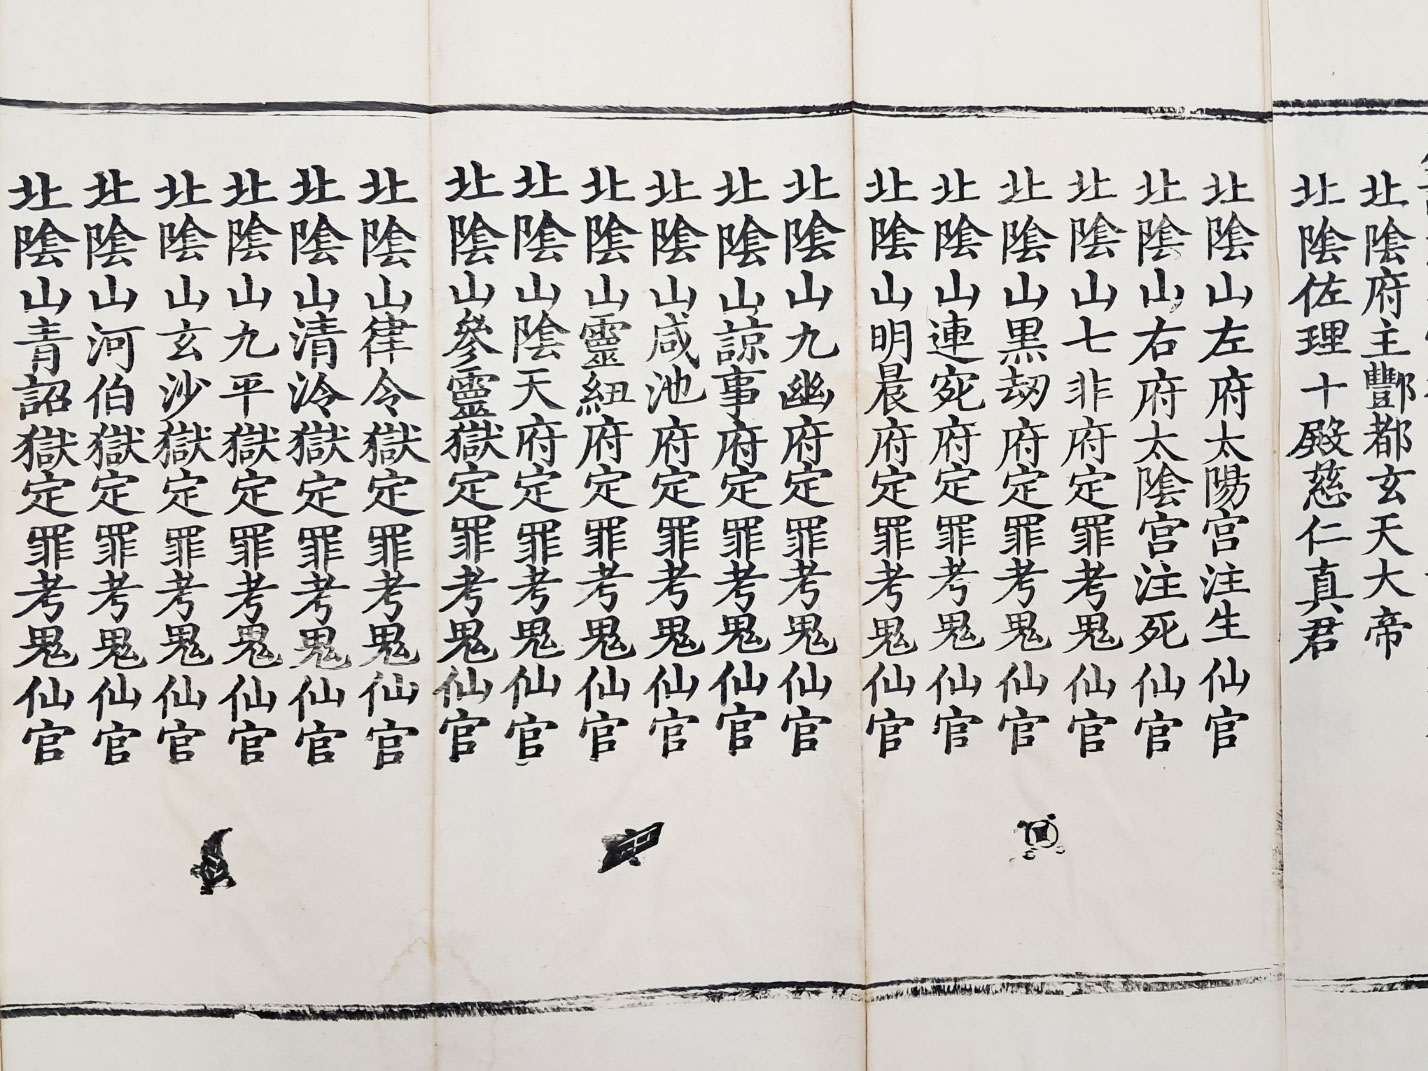 北陰府主酆都玄天大帝
北陰佐理十殿慈仁真君
北陰山左府太陽宮注生仙官
北陰山右府太陰宮注死仙官
北陰山七非府定罪考鬼仙官
北陰山黑刼府定罪考鬼仙官
北陰山連宛府定罪考鬼仙官
北陰山明晨府定罪考鬼仙官
北陰山九幽府定罪考鬼仙官
北陰山諒事府定罪考鬼仙官
北陰山咸池府定罪考鬼仙官
北陰山靈紐府定罪考鬼仙官
北陰山陰天府定罪考鬼仙官
北陰山參靈獄定罪考鬼仙官
北陰山律令獄定罪考鬼仙官
北陰山清泠獄定罪考鬼仙官
北陰山九平獄定罪考鬼仙官
北陰山玄沙獄定罪考鬼仙官
北陰山河伯獄定罪考鬼仙官
北陰山青詔獄定罪考鬼仙官